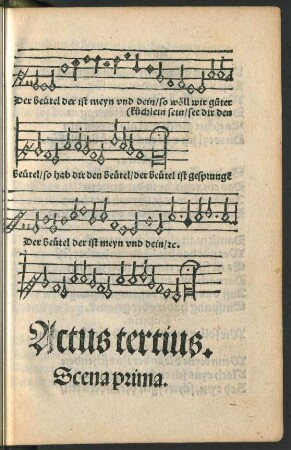 Der beütel der ist meyn vnd dein/so wöll wir güter
küchlein sein/se dir den
beütel/so hab dir den beütel/der beütel ist gesprungē
Der beütel der ist meyn vnd dein/ꝛc.
Actus tertius.
Scena prima.